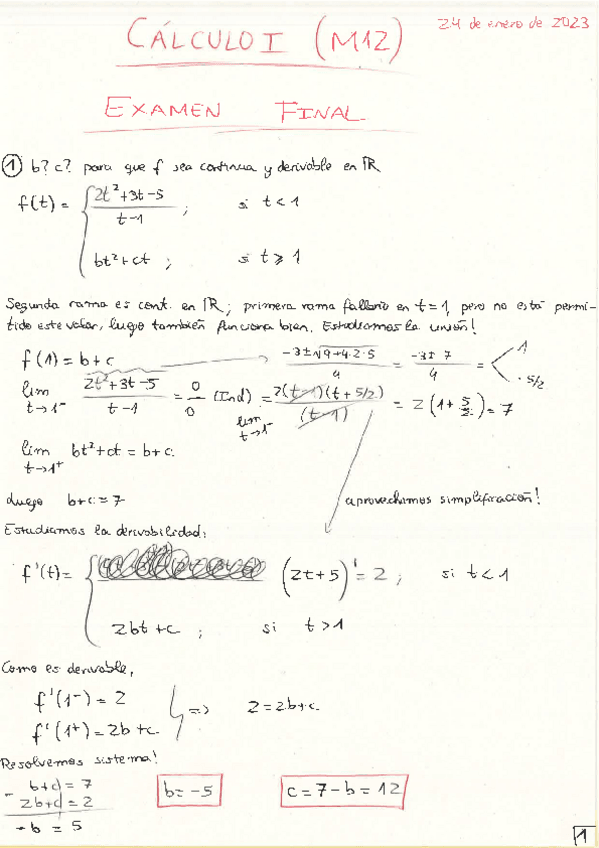 CÁLCULO I (M12)
24 de enero de 2023
EXAMEN FINAL
① b? c? para que f sea continua y derivable en ℝ
f(t) = { (2t²+3t-5)/(t-1) ; si t < 1
bt²+ct ; si t ≥ 1
Segunda rama es cont. en ℝ; primera rama fallaría en t=1, pero no está permi-
tido este valor, luego también funciona bien. Estudiamos la unión!
f(1) = b+c
(-3±√(9+4·2·5))/4 = (-3±7)/4 = < 1
-5/2
lim t→1⁻ (2t²+3t-5)/(t-1) = 0/0 (Ind) = lim t→1⁻ (2(t-1)(t+5/2))/(t-1) = 2(1+5/2) = 7
lim t→1⁺ bt²+ct = b+c.
luego b+c=7
aprovechamos simplificación!
Estudiamos la derivabilidad:
f'(t) = { (2t+5)' = 2 ; si t < 1
2bt+c ; si t > 1
Como es derivable,
f'(1⁻) = 2
f'(1⁺) = 2b+c.
=> 2=2b+c.
Resolvemos sistema!
- b+c = 7
2b+c = 2
-b = 5
b= -5
c = 7-b = 12
1